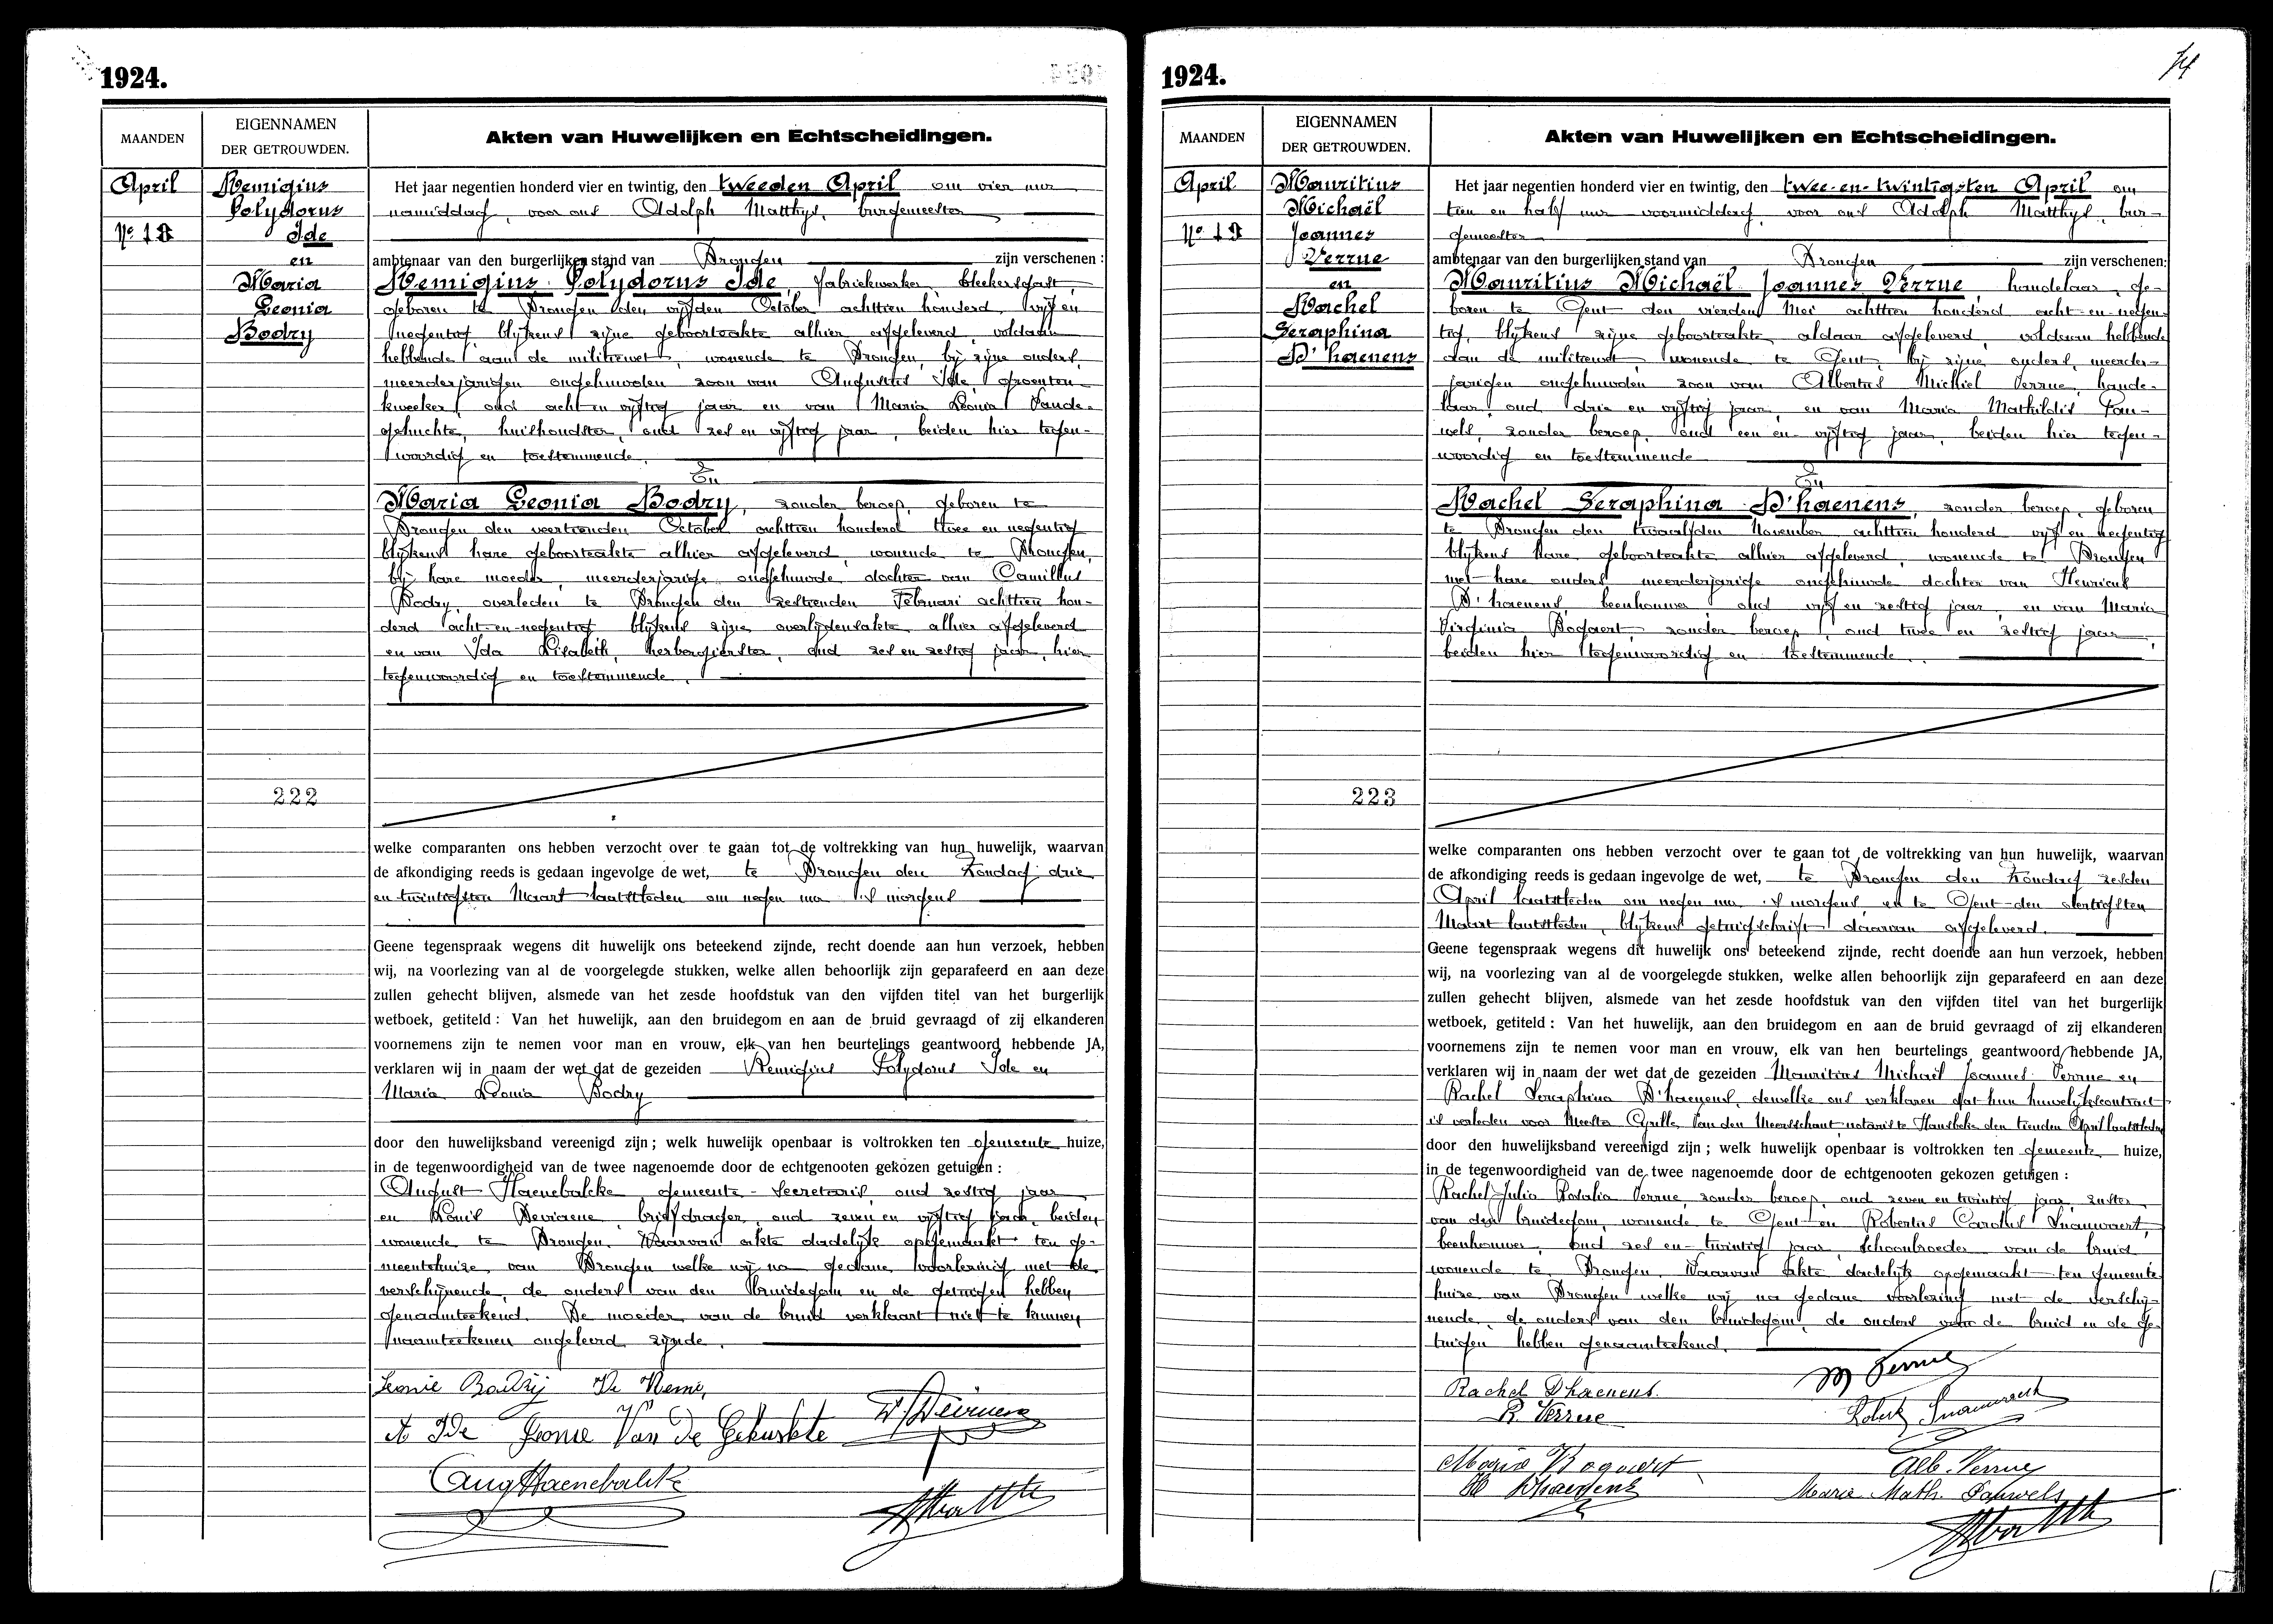 1924.
MAANDEN
EIGENNAMEN
DER GETROUWDEN.
Akten van Huwelijken en Echtscheidingen.
April
Nº 18
Remigius
Polydorus
Ide
en
Maria
Leonia
Bodry
222
Het jaar negentien honderd vier en twintig, den tweeden April om vier uur
namiddag, voor ons Adolph Matthys, burgemeester
ambtenaar van den burgerlijken stand van Drongen zijn verschenen:
Remigius Polydorus Ide, fabriekwerker bleekersgast,
geboren te Drongen den vijfden October achttien honderd vijf en
negentig blijkens zijne geboorteakte alhier afgeleverd, voldaan
hebbende aan de militiewet, wonende te Drongen, bij zijne ouders,
meerderjarigen ongehuwden zoon van Augustus Ide, groenten-
kweeker, oud acht en vijftig jaar en van Maria Leonia Vande-
gehuchte, huishoudster, oud zes en vijftig jaar, beiden hier tegen-
woordig en toestemmende.
En
Maria Leonia Bodry, zonder beroep, geboren te
Drongen den veertienden October achttien honderd twee en negentig
blijkens hare geboorteakte alhier afgeleverd, wonende te Drongen,
bij hare moeder, meerderjarige ongehuwde dochter van Camillus
Bodry, overleden te Drongen den zestienden Februari achttien hon-
derd acht-en-negentig blijkens zijne overlijdensakte alhier afgeleverd
en van Ida Lisabeth, herbergierster, oud zes en zestig jaar, hier
tegenwoordig en toestemmende.
welke comparanten ons hebben verzocht over te gaan tot de voltrekking van hun huwelijk, waarvan
de afkondiging reeds is gedaan ingevolge de wet, te Drongen den Zondag drie
en twintigsten Maart laatstleden om negen uur 's morgens
Geene tegenspraak wegens dit huwelijk ons beteekend zijnde, recht doende aan hun verzoek, hebben
wij, na voorlezing van al de voorgelegde stukken, welke allen behoorlijk zijn geparafeerd en aan deze
zullen gehecht blijven, alsmede van het zesde hoofdstuk van den vijfden titel van het burgerlijk
wetboek, getiteld: Van het huwelijk, aan den bruidegom en aan de bruid gevraagd of zij elkanderen
voornemens zijn te nemen voor man en vrouw, elk van hen beurtelings geantwoord hebbende JA,
verklaren wij in naam der wet dat de gezeiden Remigius Polydorus Ide en
Maria Leonia Bodry
door den huwelijksband vereenigd zijn; welk huwelijk openbaar is voltrokken ten gemeente huize,
in de tegenwoordigheid van de twee nagenoemde door de echtgenooten gekozen getuigen:
August Haenebalcke, gemeente-secretaris, oud zestig jaar
en Louis Deviaene, briefdrager, oud zeven en vijftig jaar, beiden
wonende te Drongen. Waarvan akte dadelijk opgemaakt ten ge-
meentehuize van Drongen welke wij na gedane voorlezing met de
verschijnende, de ouders van den bruidegom en de getuigen hebben
genaamteekend. De moeder van de bruid verklaart niet te kunnen
naamteekenen ongeleerd zijnde.
Leonie Bodry Ide Remi,
A Ide Leonie Van De Gehuchte
Aug Haenebalcke
1924.
74
MAANDEN
EIGENNAMEN
DER GETROUWDEN.
Akten van Huwelijken en Echtscheidingen.
April
Nº 19
Mauritius
Michaël
Joannes
Verrue
en
Rachel
Seraphina
D'haenens
223
Het jaar negentien honderd vier en twintig, den twee-en-twintigsten April om
tien en half uur voormiddag, voor ons Adolph Matthys, bur-
gemeester
ambtenaar van den burgerlijken stand van Drongen zijn verschenen:
Mauritius Michaël Joannes Verrue, handelaar, ge-
boren te Gent den vierden Mei achttien honderd acht-en-negen-
tig, blijkens zijne geboorteakte aldaar afgeleverd, voldaan hebbende
aan de militiewet, wonende te Gent, bij zijne ouders, meerder-
jarigen ongehuwden zoon van Albertus Michiel Verrue, hande-
laar, oud drie en vijftig jaar, en van Maria Mathildis Pau-
wels, zonder beroep, oud een en vijftig jaar, beiden hier tegen-
woordig en toestemmende
En
Rachel Seraphina D'haenens, zonder beroep, geboren
te Drongen den twaalfden November achttien honderd vijf en negentig
blijkens hare geboorteakte alhier afgeleverd, wonende te Drongen
met hare ouders meerderjarige ongehuwde dochter van Henricus
D'haenens, beenhouwer, oud vijf en zestig jaar, en van Maria
Virginia Bogaert, zonder beroep, oud twee en zestig jaar,
beiden hier tegenwoordig en toestemmende.
welke comparanten ons hebben verzocht over te gaan tot de voltrekking van hun huwelijk, waarvan
de afkondiging reeds is gedaan ingevolge de wet, te Drongen den Zondag zesden
April laatstleden om negen uur 's morgens, en te Gent den dertigsten
Maart laatstleden, blijkens getuigschrift daarvan afgeleverd.
Geene tegenspraak wegens dit huwelijk ons beteekend zijnde, recht doende aan hun verzoek, hebben
wij, na voorlezing van al de voorgelegde stukken, welke allen behoorlijk zijn geparafeerd en aan deze
zullen gehecht blijven, alsmede van het zesde hoofdstuk van den vijfden titel van het burgerlijk
wetboek, getiteld: Van het huwelijk, aan den bruidegom en aan de bruid gevraagd of zij elkanderen
voornemens zijn te nemen voor man en vrouw, elk van hen beurtelings geantwoord hebbende JA,
verklaren wij in naam der wet dat de gezeiden Mauritius Michaël Joannes Verrue en
Rachel Seraphina D'haenens, dewelke ons verklaren dat hun huwelijkscontract
is verleden voor Meester Cyrille Van den Meersschaut notaris te Hansbeke den tienden April laatstleden
door den huwelijksband vereenigd zijn; welk huwelijk openbaar is voltrokken ten gemeente huize,
in de tegenwoordigheid van de twee nagenoemde door de echtgenooten gekozen getuigen:
Rachel Julia Rosalia Verrue, zonder beroep, oud zeven en twintig jaar, zuster
van den bruidegom, wonende te Gent en Robertus Carolus Snauwaert,
beenhouwer, oud zes en-twintig jaar, schoonbroeder van de bruid
wonende te Drongen. Waarvan akte dadelijk opgemaakt ten gemeente
huize van Drongen welke wij na gedane voorlezing met de verschij-
nende, de ouders van den bruidegom, de ouders van de bruid en de ge-
tuigen hebben genaamteekend.
M Verrue
Rachel Dhaenens.
R. Verrue
Robert Snauwaert
Maria Bogaert
Alb. Verrue
H Dhaenens
Marie Math. Pauwels